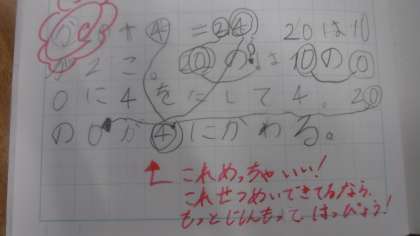 20+4=24 20は10
が2こ。20の?は10の0
0に4をにして4。20
の0が4にかわる。
これめっちゃいい!
これせつめいできてるなら、
もっとじしんもって はっぴょう!